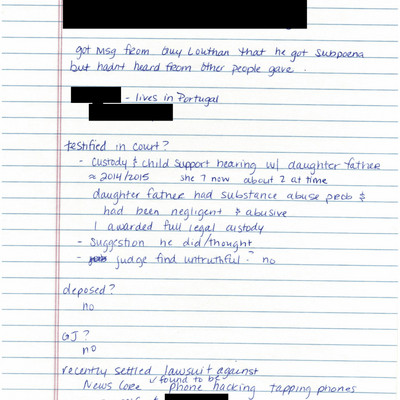 got msg from Guy Louthan that he got subpoena
but hadnt heard from other people gave.
- lives in Portugal
testified in court?
- Custody & child support hearing w/ daughter father
≈ 2014/2015 she 7 now about 2 at time
daughter father had substance abuse prob &
had been negligent & abusive
I awarded full legal custody
- Suggestion he did/thought
- judge find untruthful? no
deposed?
no
GJ?
no
recently settled lawsuit against
found to be
News Corp phone hacking tapping phones